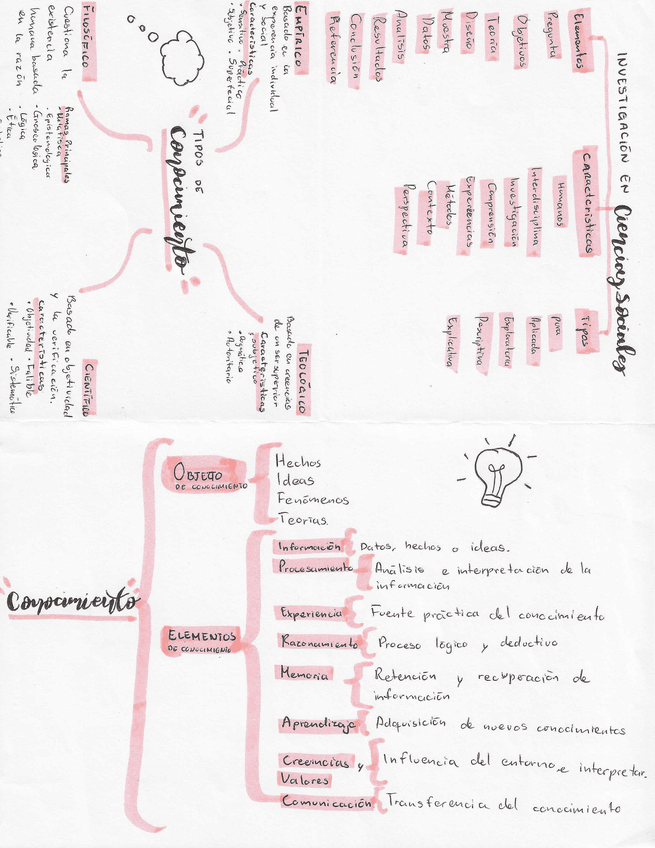 INVESTIGACIÓN EN Ciencias Sociales
Elementos
Pregunta
Objetivos
Teoría
Diseño
Muestra
Datos
Análisis
Resultados
Conclusión
Referencia
Características
Humanos
Interdisciplina
Investigación
Comprensión
Experiencias
Métodos
Contexto
Perspectiva
Tipos
pura
Aplicada
Exploratoria
Descriptiva
Explicativa
TIPOS DE
Conocimiento
EMPÍRICO
Basado en la
experiencia individual
y social
Características
• Sensitivo • Práctico
• Subjetivo • Superficial
FILOSÓFICO
Cuestiona la
existencia
humana basada
en la razón
Ramas Principales
• Epistemológica
• Gnoseológica
• Lógica
• Ética
TEOLÓGICO
Basado en creencias
de un ser superior
Características
• Subjetivo
• Autoritario
CIENTÍFICO
Basado en objetividad
y la verificación.
Características
• Objetividad • Falible
• Verificable • Sistemático
Conocimiento
OBJETO
DE CONOCIMIENTO
Hechos
Ideas
Fenómenos
Teorías
ELEMENTOS
DE CONOCIMIENTO
Información Datos, hechos o ideas.
Procesamiento Análisis e interpretación de la
información
Experiencia Fuente práctica del conocimiento
Razonamiento Proceso lógico y deductivo
Memoria Retención y recuperación de
información
Aprendizaje Adquisición de nuevos conocimientos
Creencias y Influencia del entorno e interpretar.
Valores
Comunicación Transferencia del conocimiento